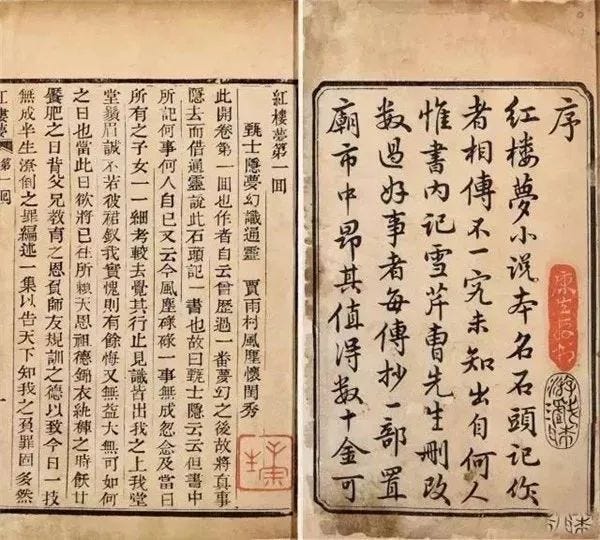 序
紅楼夢小説本名石頭記作
者相傳不一究未知出自何人
惟書内記雪芹曹先生删改
数過好事者每傳抄一部置
廟市中昂其值得数十金可
紅樓夢第一囘
甄士隱夢幻識通靈　賈雨村風塵懷閨秀
此開卷第一囘也作者自云曾歷過一番夢幻之後故將眞事
隱去而借通靈說此石頭記一書也故曰甄士隱云云但書中
所記何事何人自己又云今風塵碌碌一事無成忽念及當日
所有之子女一一細考較去覺其行止見識皆出我之上我堂
堂鬚眉誠不若彼裙釵我實愧則有餘悔又無益大無可如何
之日也當此日欲將已往所賴天恩祖德錦衣紈袴之時飫甘
饜肥之日背父兄教育之恩負師友規訓之德以致今日一技
無成半生潦倒之罪編述一集以告天下知我之負罪固多然
紅樓夢　第一囘　一